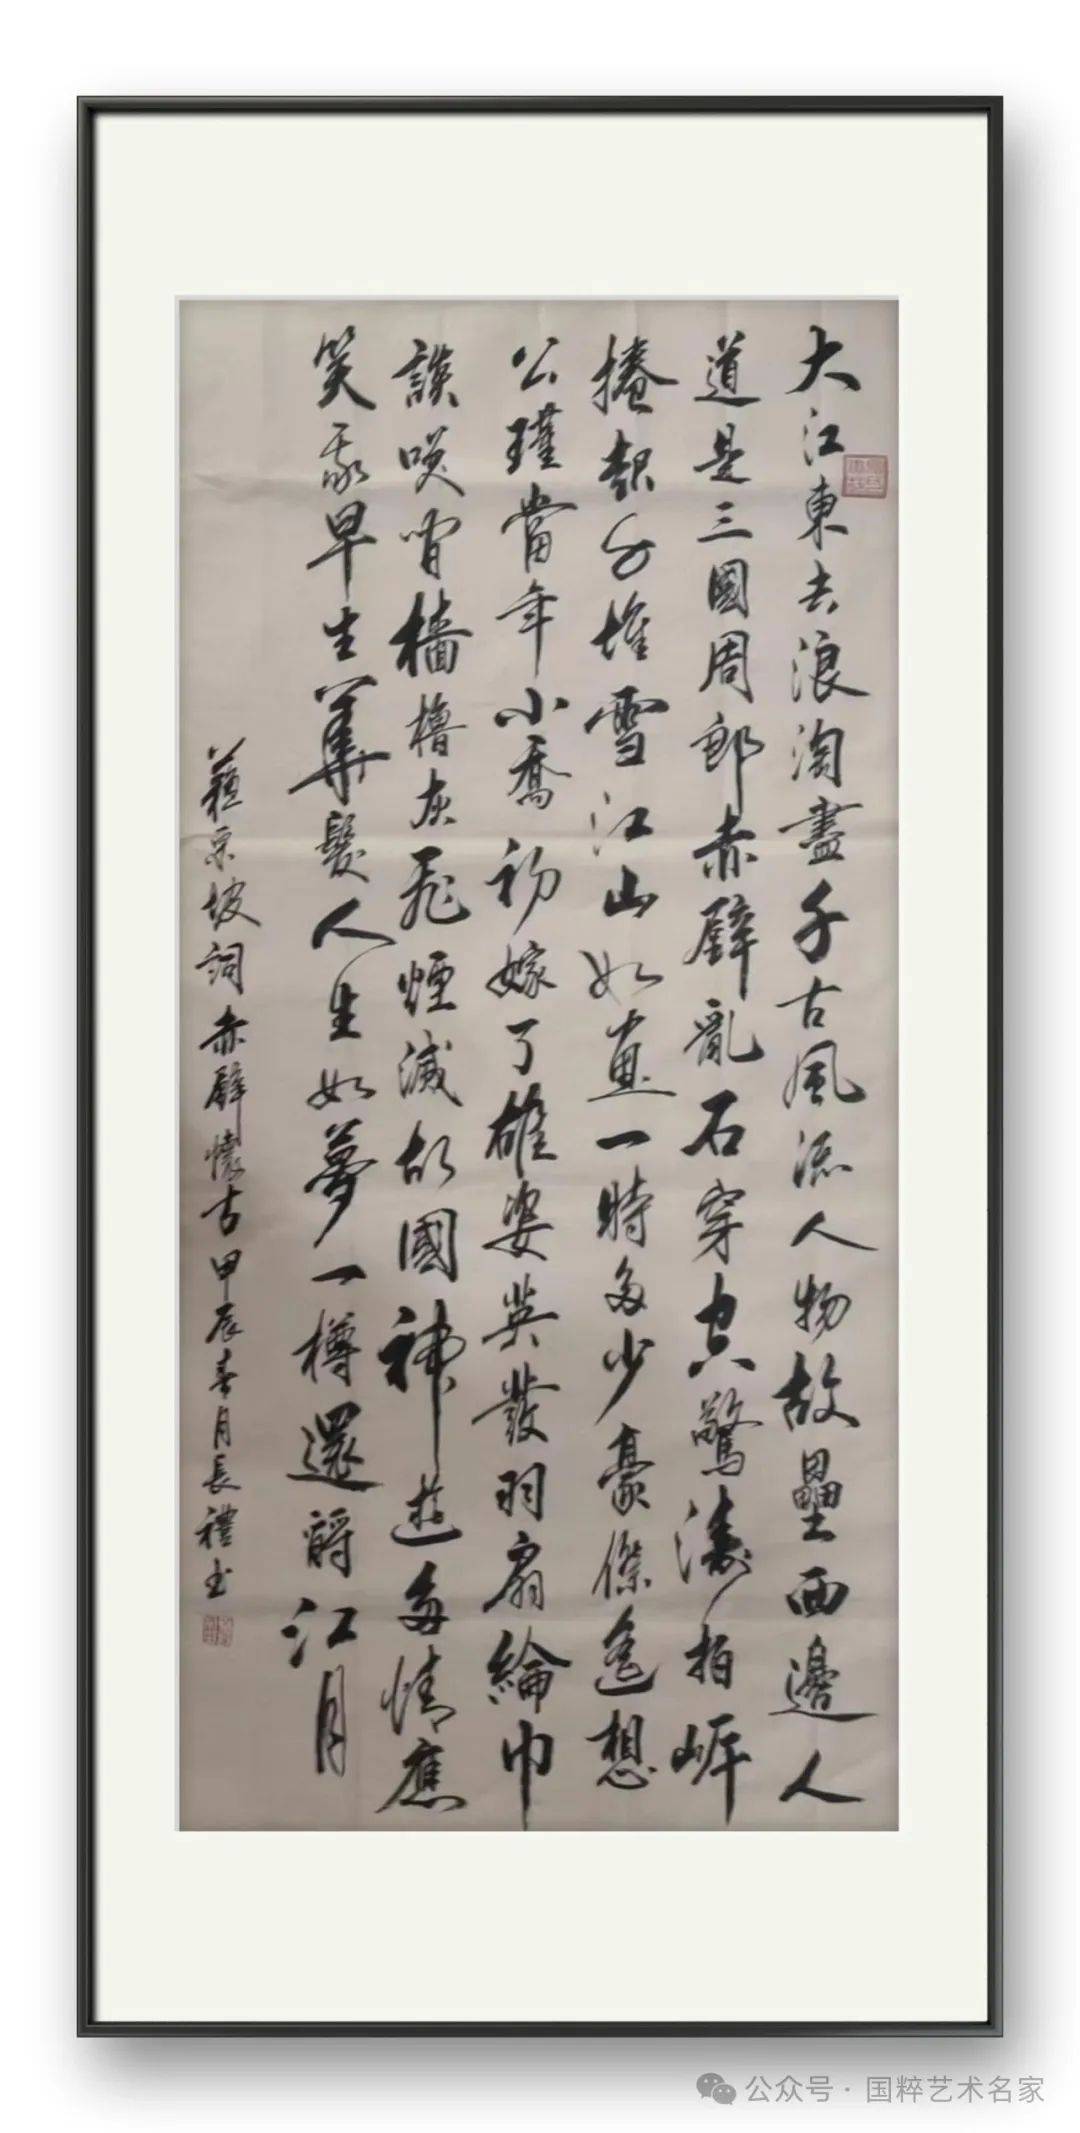 大江東去浪淘盡千古風流人物故壘西邊人
道是三國周郎赤壁亂石穿空驚濤拍岸
捲起千堆雪江山如畫一時多少豪傑遙想
公瑾當年小喬初嫁了雄姿英發羽扇綸巾
談笑間檣櫓灰飛煙滅故國神遊多情應
笑我早生華髮人生如夢一樽還酹江月
蘇東坡詞赤壁懷古甲辰春月長禮书
公众号·国粹艺术名家